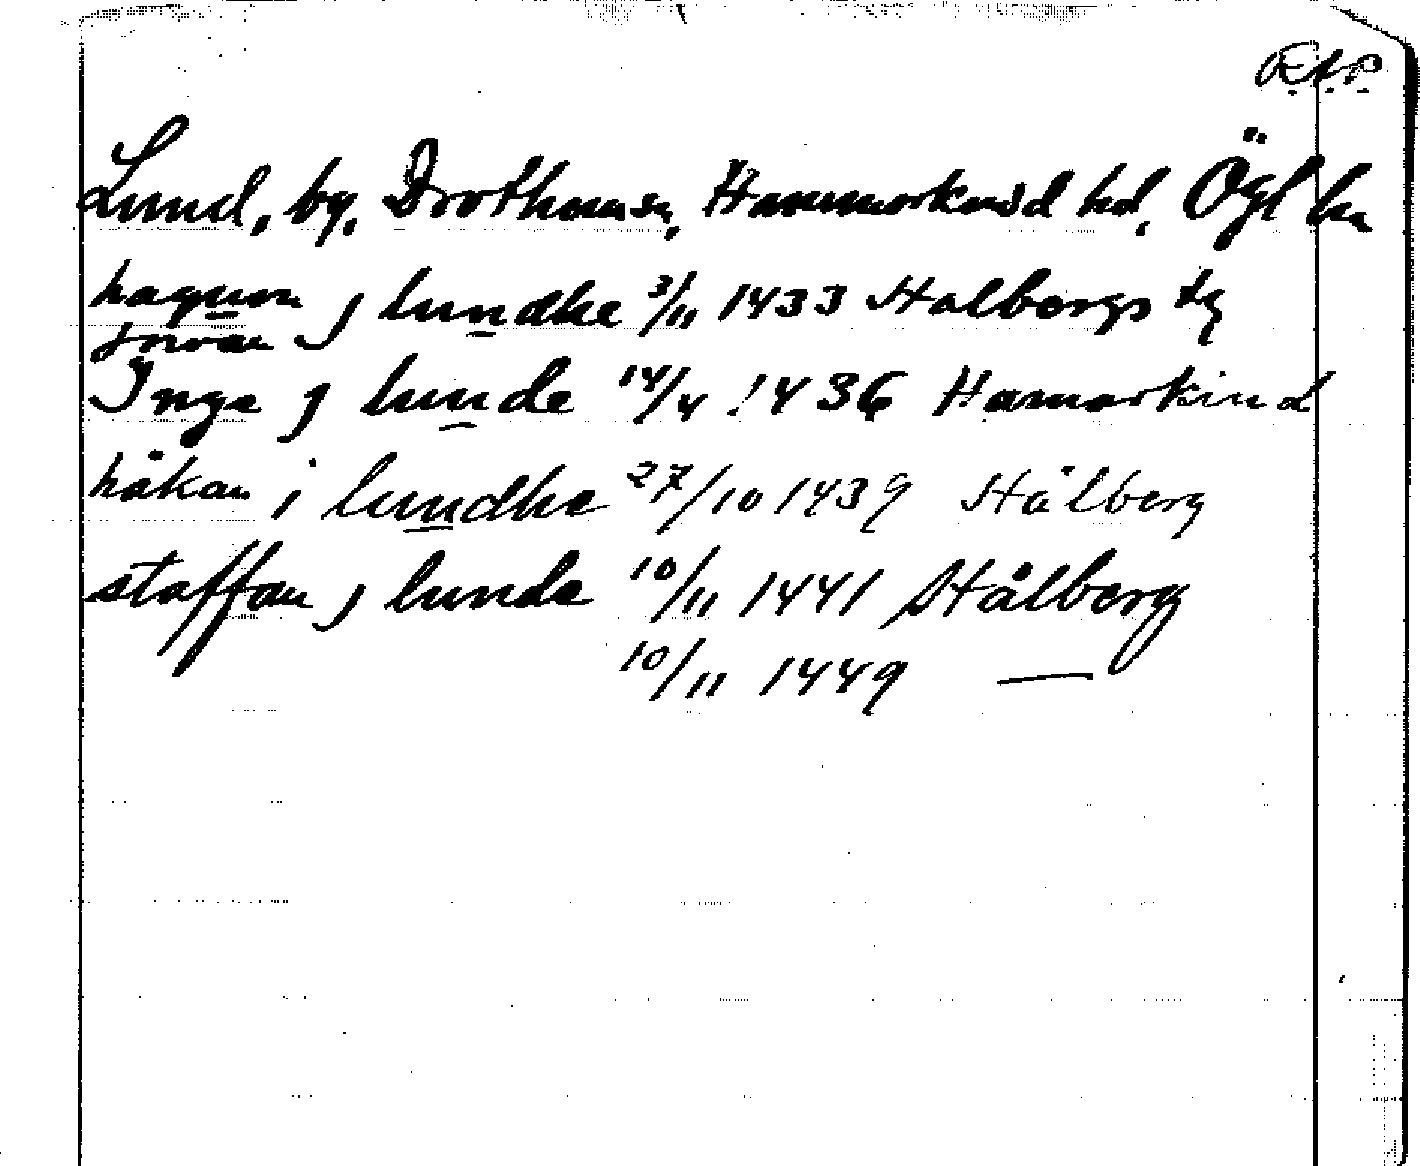 R.A.P.
Lund, by, Drothems sn, Hammarkind hd, Ögl ln
haqwon j lundhe 3/11 1433 Stalbergs tg
Inge j lunde 14/4 1436 Hamarkind
håkan i lundhe 27/10 1439 Stålberg
staffan j lunde 10/11 1441 Stålberg
10/11 1449 —